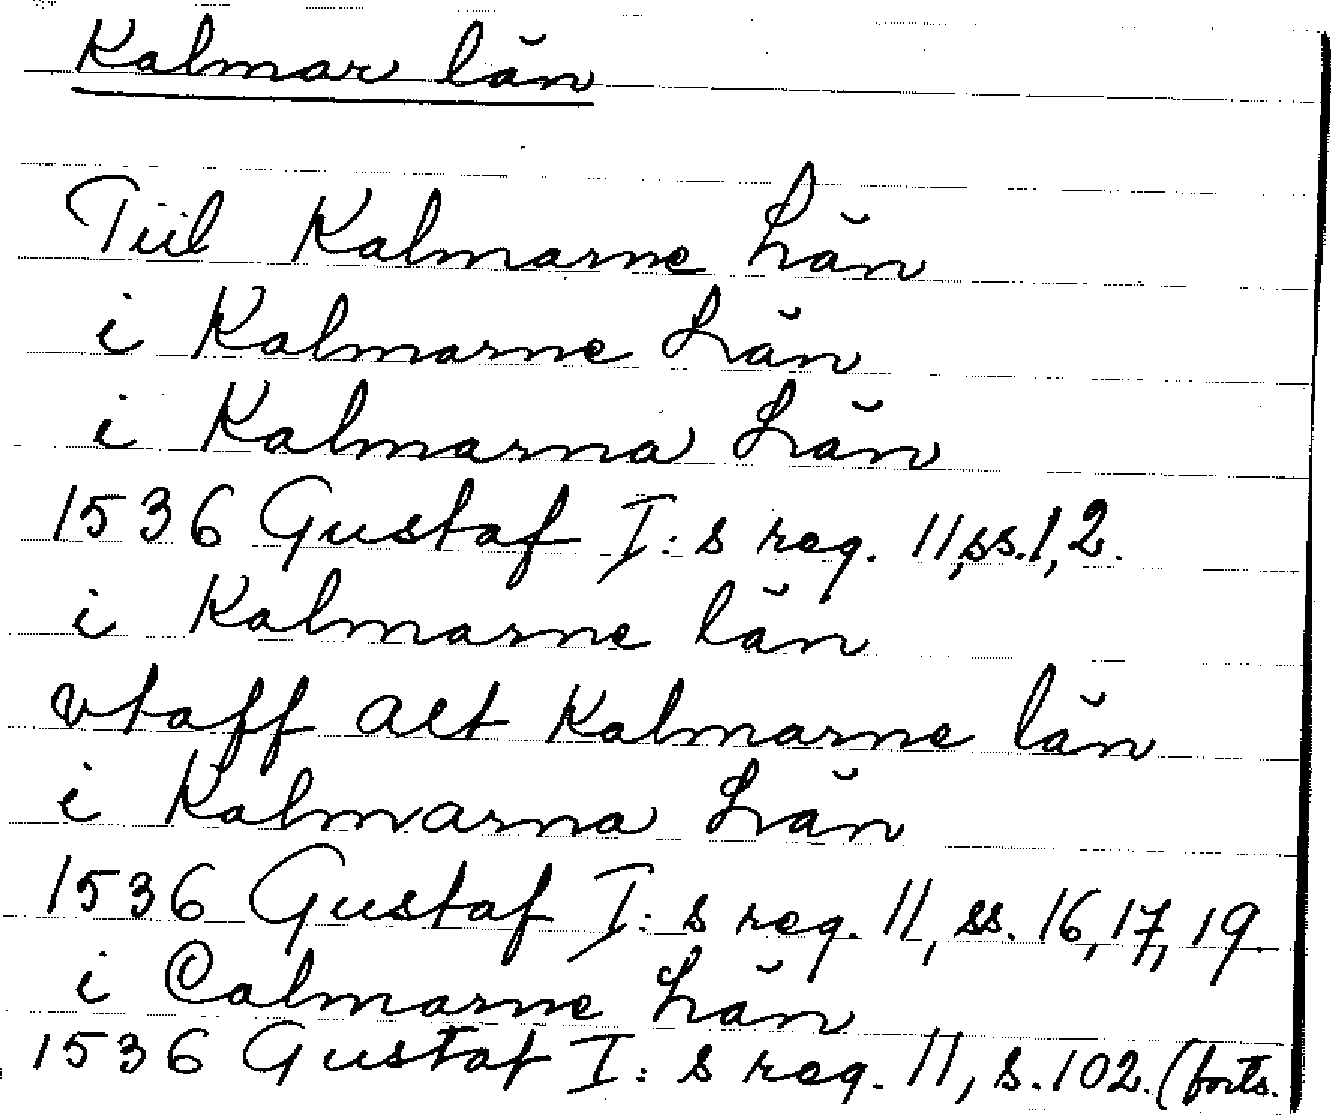 Kalmar län
Tiil Kalmarne Län
i Kalmarne Län
i Kalmarna Län
1536 Gustaf I:s reg. 11, ss. 1, 2.
i Kalmarne län
vtaff alt Kalmarne län
i Kalmarna Län
1536 Gustaf I:s reg. 11, ss. 16, 17, 19.
i Calmarne Län
1536 Gustaf I:s reg. 11, s. 102. (forts.